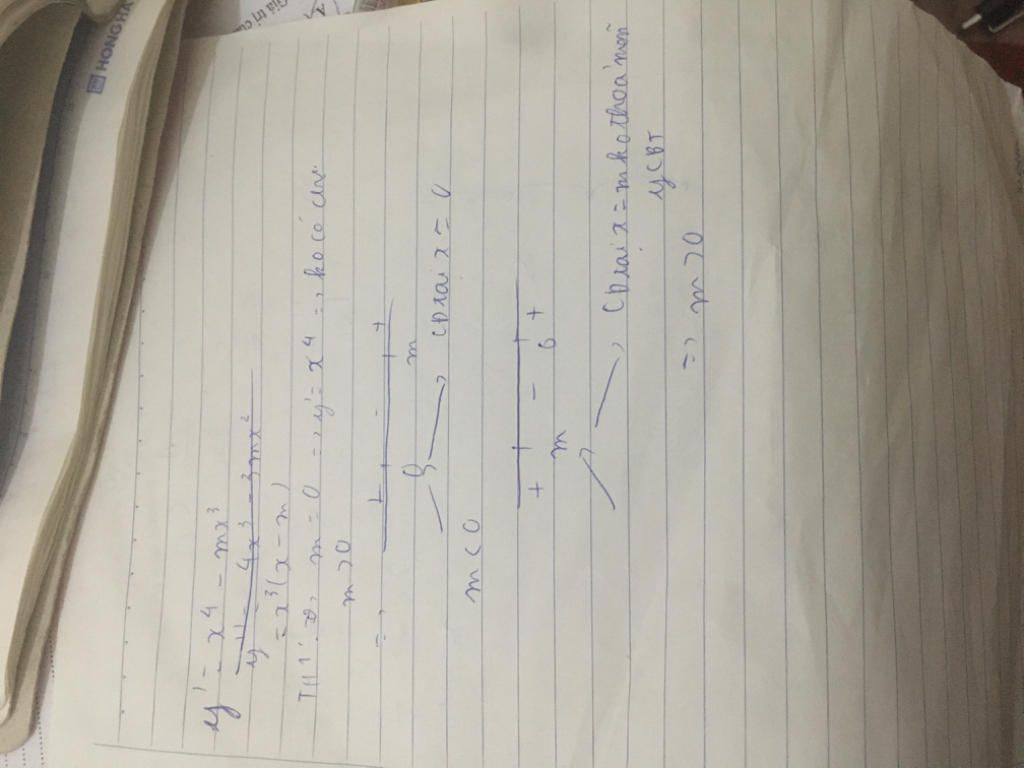 HONG HÀ
Giá trị củ
y' = x⁴ - mx³
y'' = 4x³ - 3mx²
= x³(x - m)
TH1: m = 0 => y' = x⁴ => ko có cực
m > 0
=> + - +
0 m
CĐ tại x = 0
m < 0
+ - +
m 0
CĐ tại x = m ko thoả mãn
yCBT
=> m > 0